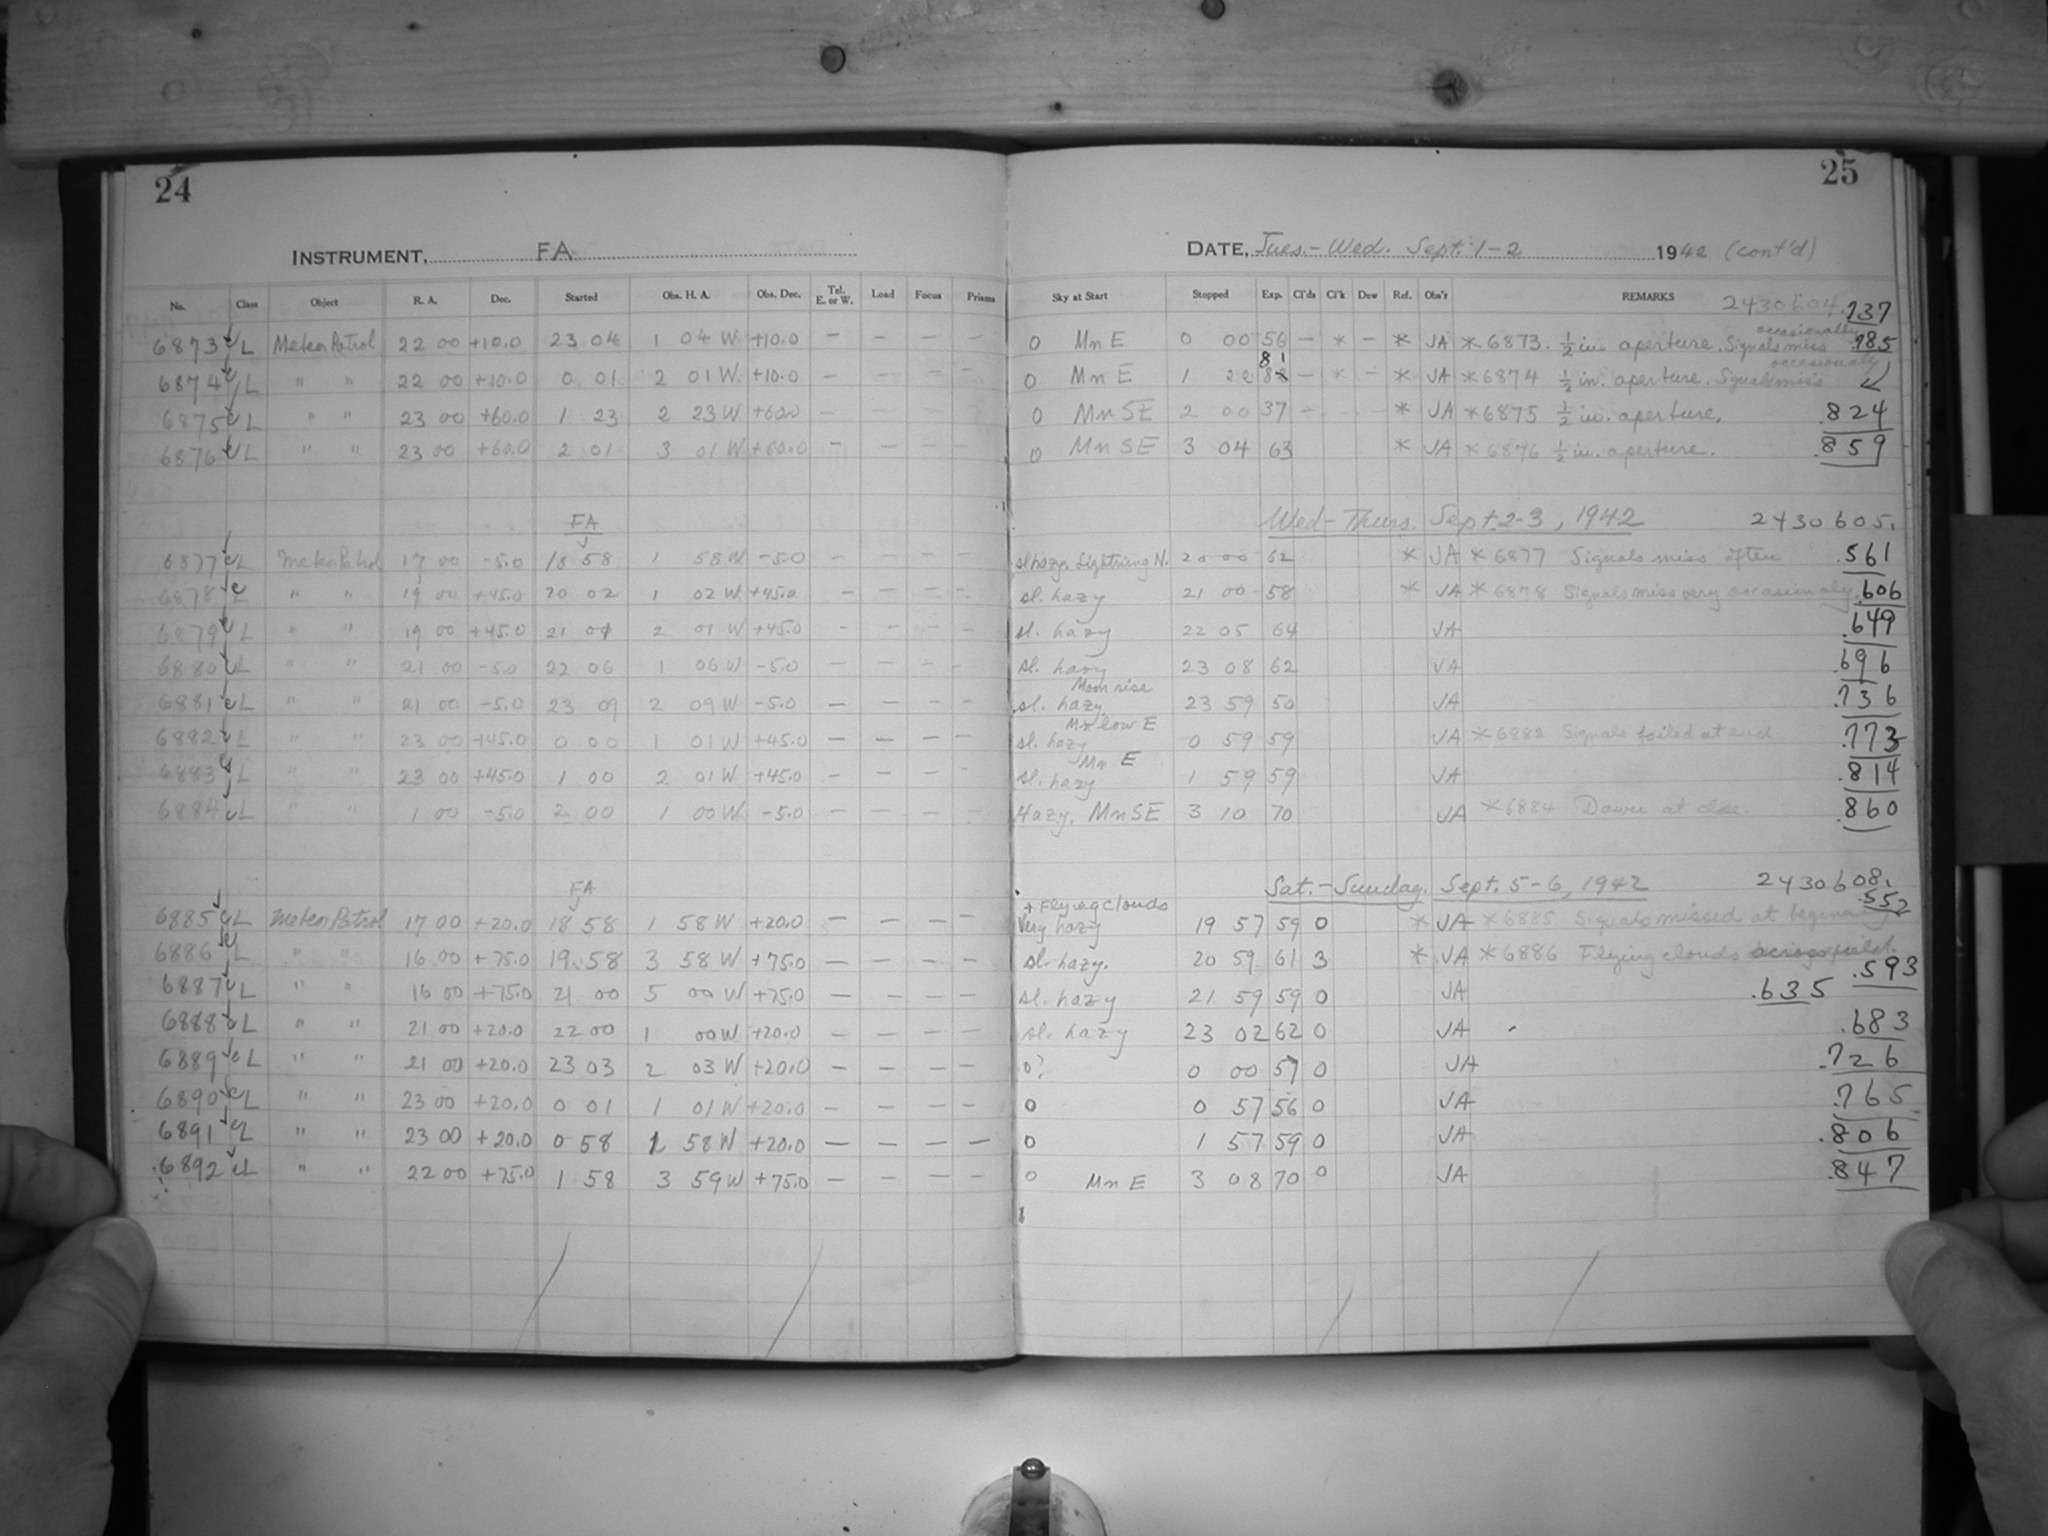 24
INSTRUMENT, FA
No. Class Object R. A. Dec. Started Obs. H. A. Obs. Dec. Tel. E. or W. Load Focus Prisms
6873 L Meteor Patrol 22 00 +10.0 23 04 1 04 W +10.0 — — — —
6874 L " " 22 00 +10.0 0 01 2 01 W +10.0 — — — —
6875 L " " 23 00 +60.0 1 23 2 23 W +60.0 — — — —
6876 L " " 23 00 +60.0 2 01 3 01 W +60.0 — — — —
FA
6877 L Meteor Patrol 17 00 -5.0 18 58 1 58 W -5.0 — — — —
6878 L " " 19 00 +45.0 20 02 1 02 W +45.0 — — — —
6879 L " " 19 00 +45.0 21 01 2 01 W +45.0 — — — —
6880 L " " 21 00 -5.0 22 06 1 06 W -5.0 — — — —
6881 L " " 21 00 -5.0 23 09 2 09 W -5.0 — — — —
6882 L " " 23 00 +45.0 0 00 1 01 W +45.0 — — — —
6883 L " " 23 00 +45.0 1 00 2 01 W +45.0 — — — —
6884 L " " 1 00 -5.0 2 00 1 00 W -5.0 — — — —
FA
6885 L Meteor Patrol 17 00 +20.0 18 58 1 58 W +20.0 — — — —
6886 L " " 16 00 +75.0 19 58 3 58 W +75.0 — — — —
6887 L " " 16 00 +75.0 21 00 5 00 W +75.0 — — — —
6888 L " " 21 00 +20.0 22 00 1 00 W +20.0 — — — —
6889 L " " 21 00 +20.0 23 03 2 03 W +20.0 — — — —
6890 L " " 23 00 +20.0 0 01 1 01 W +20.0 — — — —
6891 L " " 23 00 +20.0 0 58 1 58 W +20.0 — — — —
6892 L " " 22 00 +75.0 1 58 3 59 W +75.0 — — — —
25
DATE, Tues.-Wed. Sept. 1-2 1942 (cont'd)
Sky at Start Stopped Exp. Cl'ds Cl'k Dew Ref. Obs'r REMARKS 2430604.737
0 Mn E 0 00 56 — * — * JA *6873. ½ in. aperture. Signals miss occasionally .785
0 Mn E 1 22 81 — * — * JA *6874 ½ in. aperture. Signals miss occasionally
0 Mn SE 2 00 37 — — — * JA *6875 ½ in. aperture. .824
0 Mn SE 3 04 63 * JA *6876 ½ in. aperture. .859
Wed-Thurs. Sept. 2-3, 1942 2430605.
sl hazy. Lightning N. 20 00 62 * JA *6877 Signals miss often .561
sl. hazy 21 00 58 * JA *6878 Signals miss very occasionally .606
sl. hazy 22 05 64 JA .649
sl. hazy 23 08 62 JA .696
Moon rise
sl. hazy 23 59 50 JA .736
Mn low E
sl. hazy 0 59 59 JA *6882 Signals failed at end .773
Mn E
sl. hazy 1 59 59 JA .814
Hazy, Mn SE 3 10 70 JA *6884 Dawn at close. .860
Sat.-Sunday. Sept. 5-6, 1942 2430608.
+ Flying clouds .552
Very hazy 19 57 59 0 * JA *6885 Signals missed at beginning
sl. hazy. 20 59 61 3 * JA *6886 Flying clouds across field. .593
sl. hazy 21 59 59 0 JA .635
sl. hazy 23 02 62 0 JA .683
0? 0 00 57 0 JA .726
0 0 57 56 0 JA .765
0 1 57 59 0 JA .806
0 Mn E 3 08 70 0 JA .847